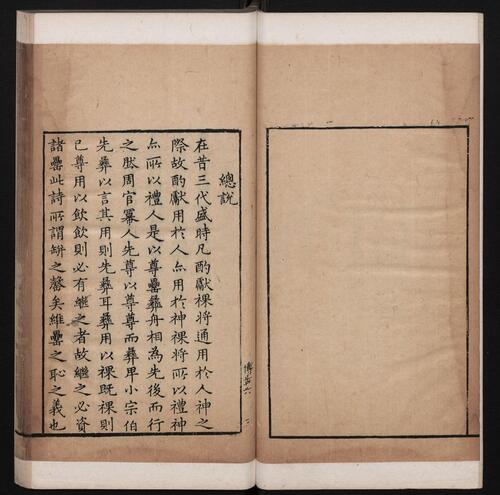 總說
在昔三代盛時凡酌獻祼將通用於人神之
際故酌獻用於人亦用於神祼將所以禮神
亦所以禮人是以尊罍彝舟相為先後而行
之然周官冪人先尊以尊尊而彝卑小宗伯
先彝以言其用則先彝耳彝用以祼既祼則
已尊用以飲飲則必有繼之者故繼之必資
諸罍此詩所謂缾之罄矣維罍之恥之義也
博古六